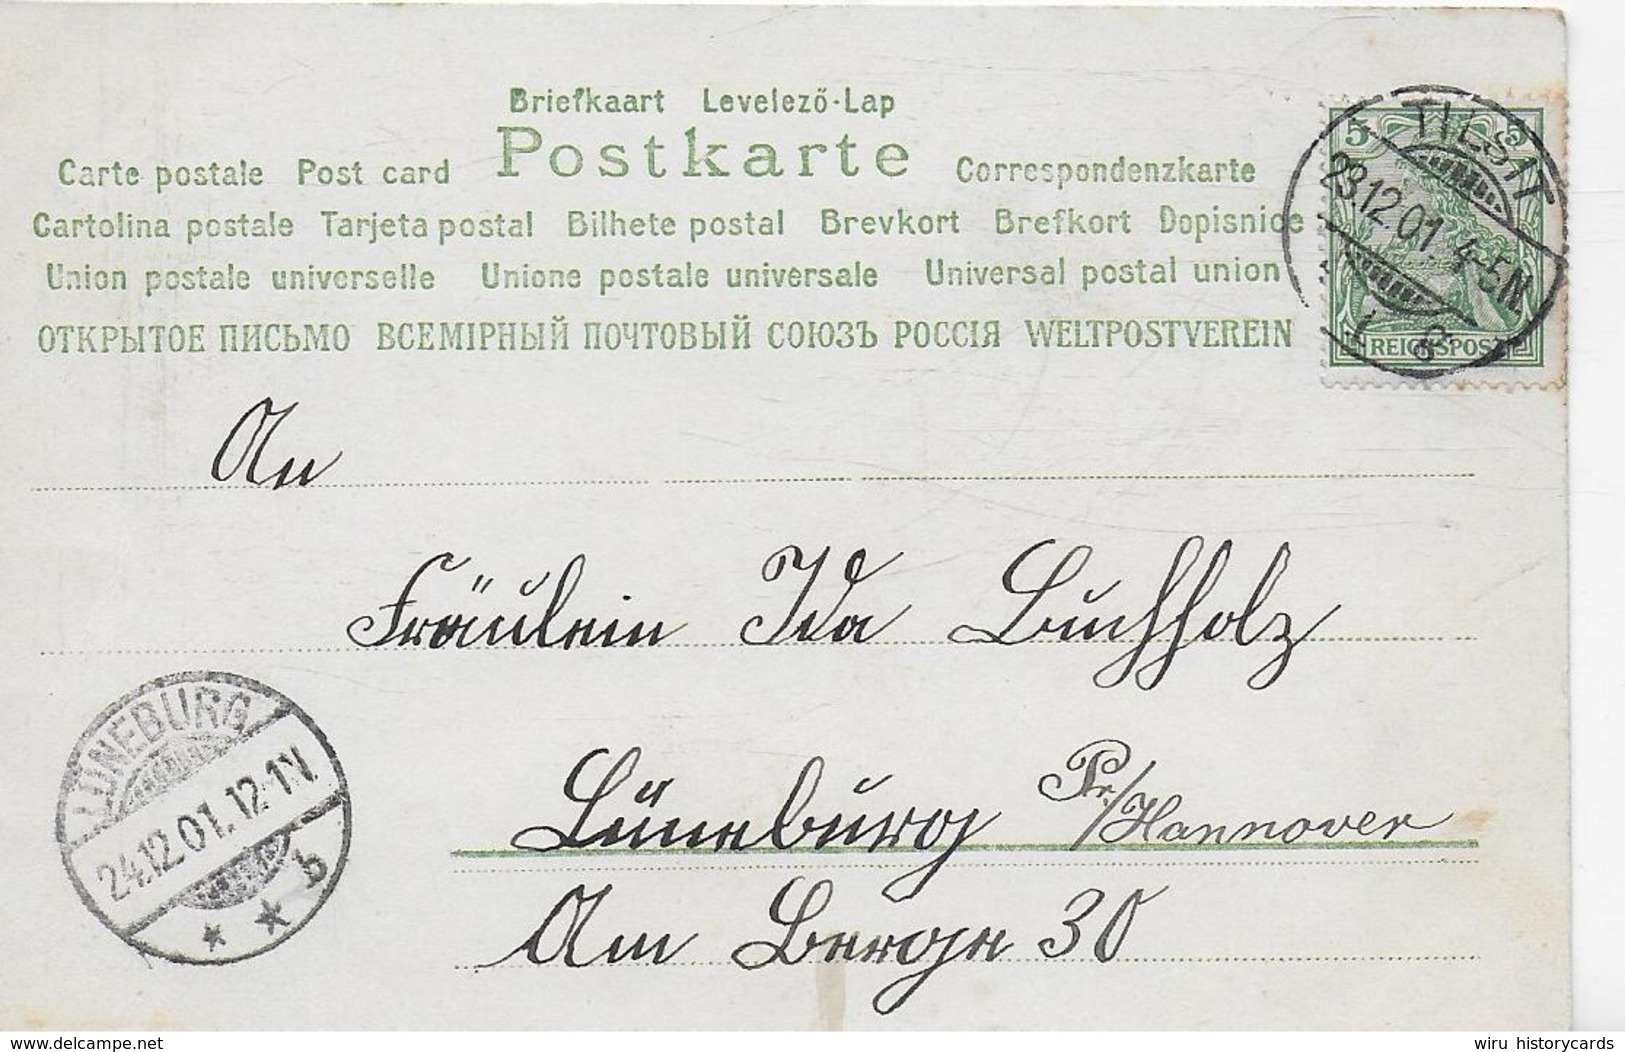 Briefkaart Levelező-Lap
Postkarte
Carte postale Post card Correspondenzkarte
Cartolina postale Tarjeta postal Bilhete postal Brevkort Brefkort Dopisnice
Union postale universelle Unione postale universale Universal postal union
ОТКРЫТОЕ ПИСЬМО ВСЕМІРНЫЙ ПОЧТОВЫЙ СОЮЗЪ РОССІЯ WELTPOSTVEREIN
5 5
REICHSPOST
TILSIT
23.12.01. 4-5N.
1 g
An
Fräulein Ida Buchholz
Lüneburg Pr/Hannover
Am Berge 30
LÜNEBURG
24.12.01. 12-1N.
* * b
www.delcampe.net
wiru historycards